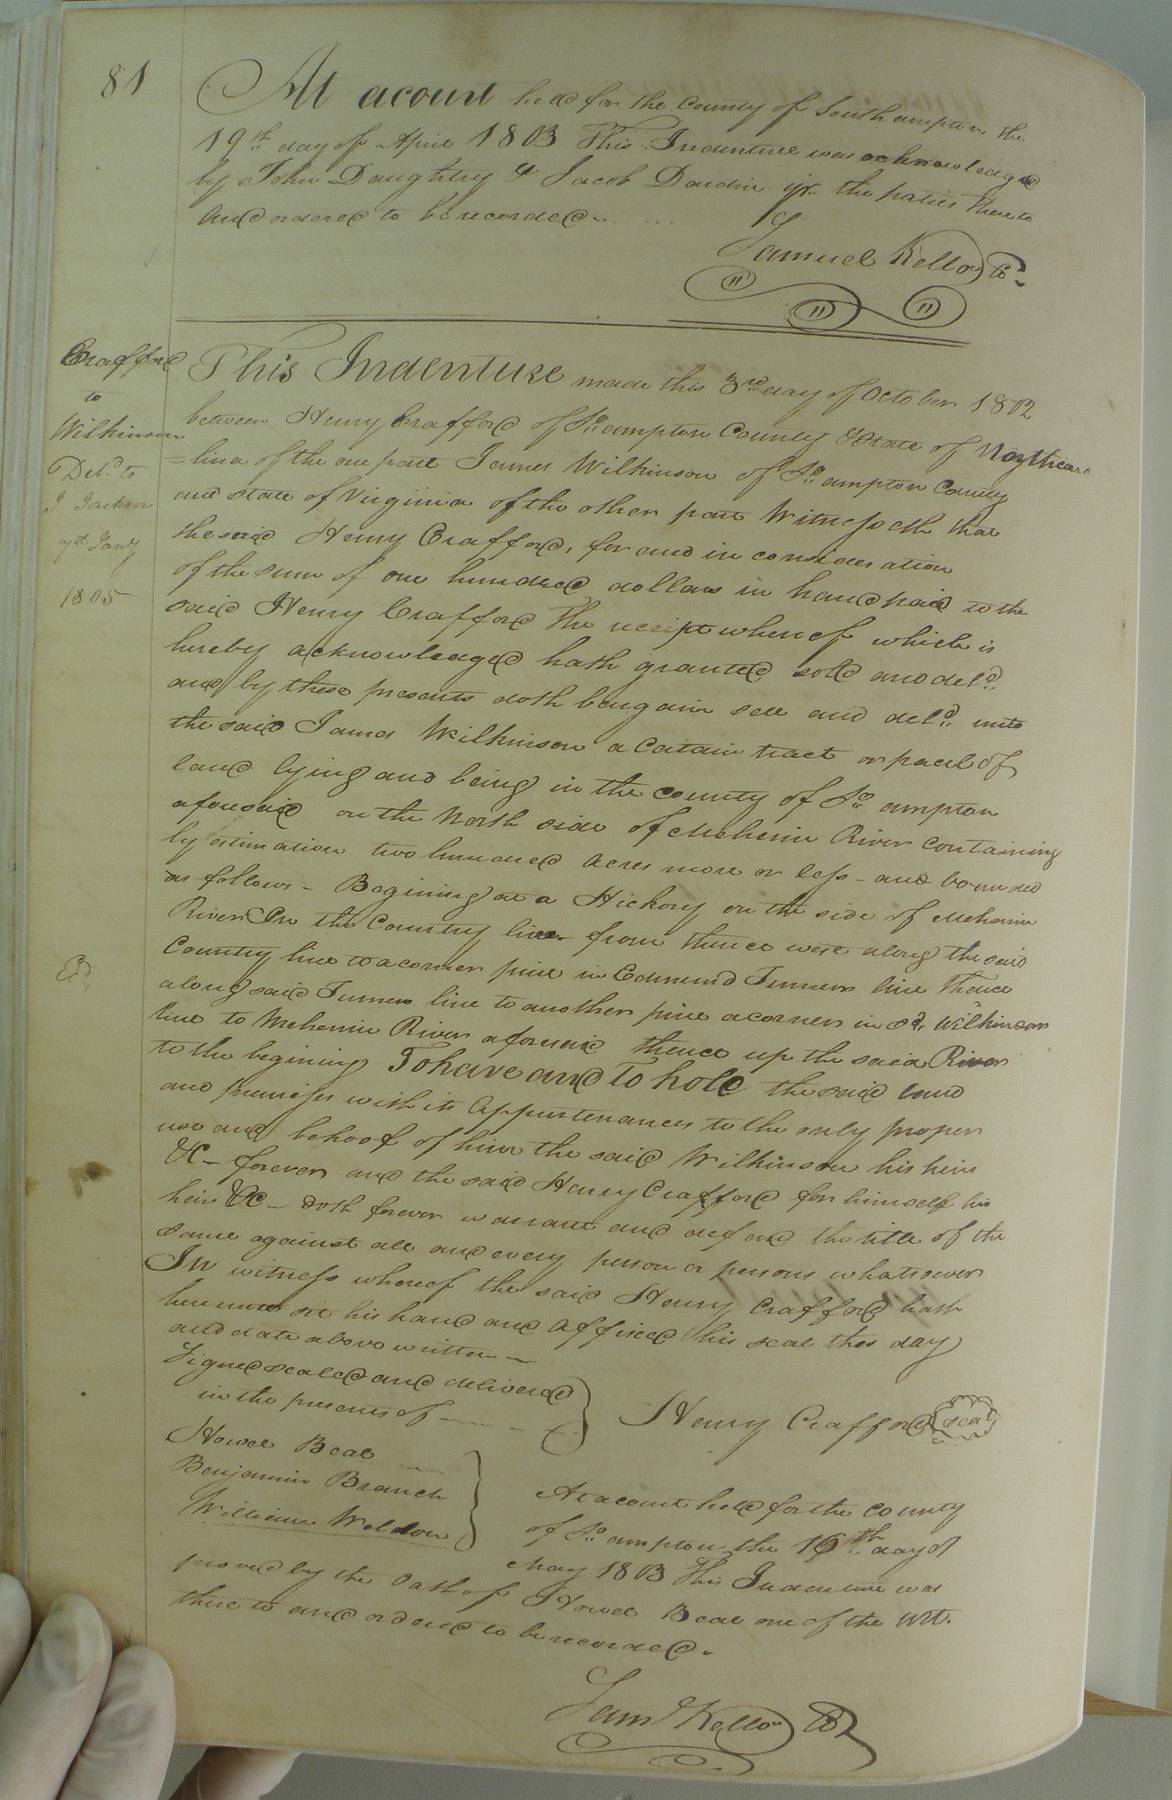 81
At a court held for the County of Southampton the
19th day of April 1803 This Indenture was acknowledged
by John Daughtry & Jacob Dardin jr. the paties there to
and ordered to be recorded
Samuel Kello Cl
Crafford
to
Wilkinson
Del.d to
J Jackson
7th Jany
1805
This Indenture made this 3rd day of October 1802
between Henry Crafford of So.ampton County & State of Northcaro
=lina of the one part James Wilkinson of So.ampton County
and State of Virginia of the other part Witnesseth that
the said Henry Crafford, for and in consideration
of the sum of one hundred dollars in hand paid to the
said Henry Crafford the receipt whereof which is
hereby acknowledged hath granted sold and del.d
and by these presents doth bargain sell and del.d unto
the said James Wilkinson a Certain tract or parcel of
land lying and being in the County of So.ampton
aforesaid on the North side of Meherrin River containing
by estimation two hundred acres more or less - and bounded
as follows - Begining at a Hickory on the side of Meherrin
River On the Country line from thence west along the said
Country line to a corner pine in Edmund Turners line Thence
along said Turners line to another pine a corner in sd. Wilkinson
line to Meherrin River aforesaid thence up the said River
to the begining To have and To hold the said land
and premises with its Appurtenances to the only proper
use and behoof of him the said Wilkinson his heirs
&C - forever and the said Henry Crafford for himself his
heirs &C - doth forever warrant and defend the title of the
same against all and every person or persons whatsoever
In witness whereof the said Henry Crafford hath
hereunto set his hand and affixed his seal the day
and date above written
Signed sealed and delivered
in the presents of
Henry Crafford seal
Howel Beal
Benjamin Branch
William Weldon
At a court held for the County
of So.ampton the 16th day of
May 1803 This Indenture was
proved by the Oath of Howel Beal one of the wit.
there to and ordered to be recorded.
Saml Kello Cl